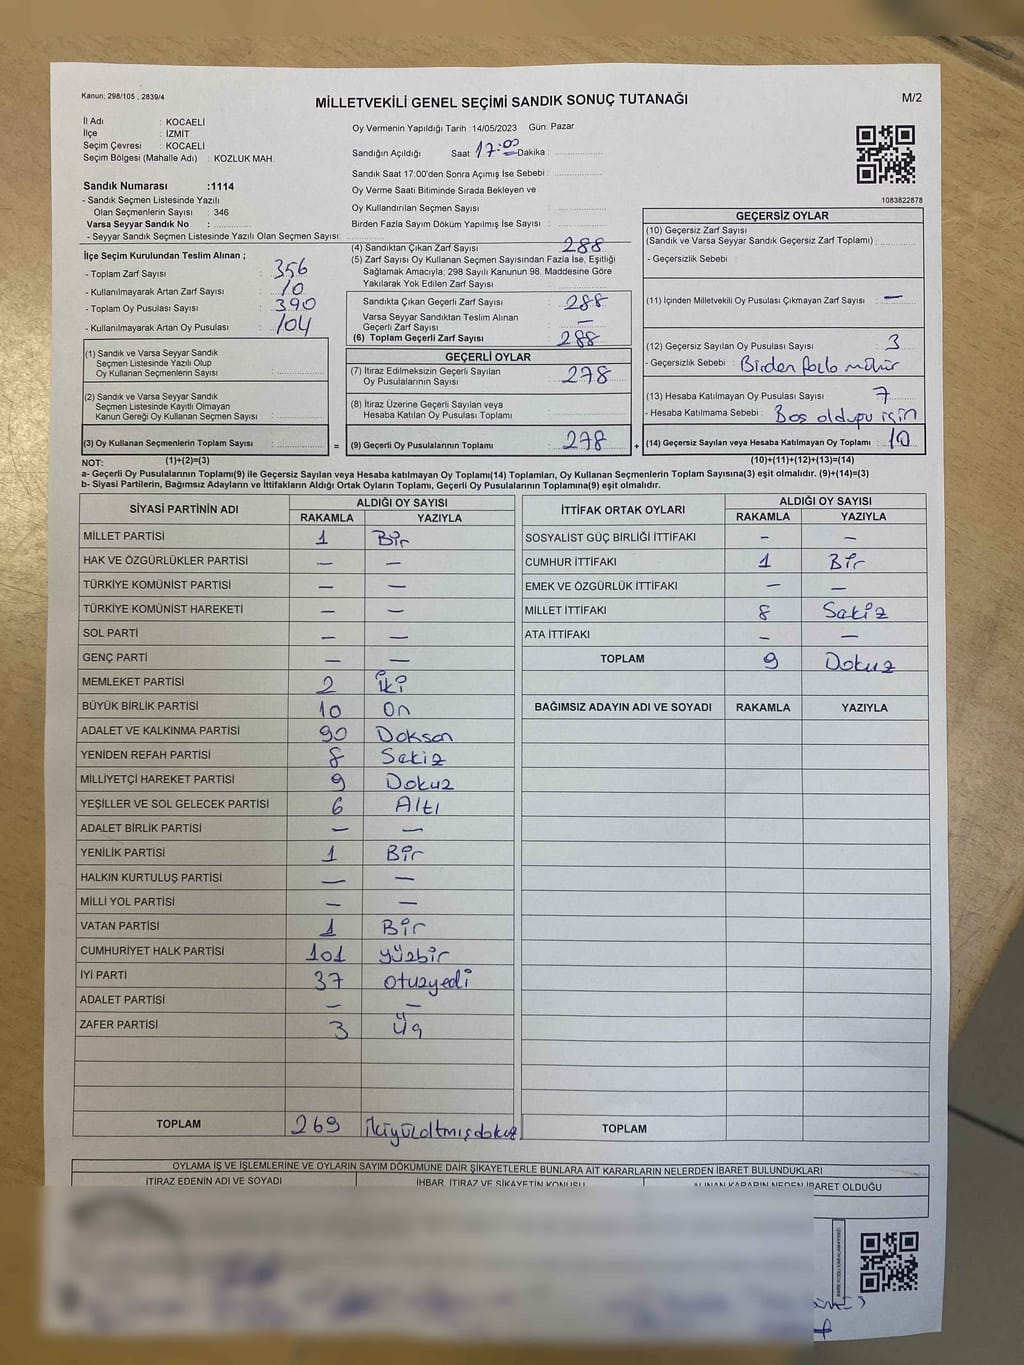 Kanun; 298/105 , 2839/4
MİLLETVEKİLİ GENEL SEÇİMİ SANDIK SONUÇ TUTANAĞI
M/2
İl Adı : KOCAELİ
İlçe : İZMİT
Seçim Çevresi : KOCAELİ
Seçim Bölgesi (Mahalle Adı) : KOZLUK MAH.
Sandık Numarası :1114
- Sandık Seçmen Listesinde Yazılı
Olan Seçmenlerin Sayısı : 346
Varsa Seyyar Sandık No :
- Seyyar Sandık Seçmen Listesinde Yazılı Olan Seçmen Sayısı:
İlçe Seçim Kurulundan Teslim Alınan ;
- Toplam Zarf Sayısı : 356
- Kullanılmayarak Artan Zarf Sayısı : 10
- Toplam Oy Pusulası Sayısı : 390
- Kullanılmayarak Artan Oy Pusulası : 104
(1) Sandık ve Varsa Seyyar Sandık
Seçmen Listesinde Yazılı Olup
Oy Kullanan Seçmenlerin Sayısı :
(2) Sandık ve Varsa Seyyar Sandık
Seçmen Listesinde Kayıtlı Olmayan
Kanun Gereği Oy Kullanan Seçmen Sayısı :
(3) Oy Kullanan Seçmenlerin Toplam Sayısı :
Oy Vermenin Yapıldığı Tarih :14/05/2023 Gün: Pazar
Sandığın Açıldığı Saat :17:00 Dakika :
Sandık Saat 17:00'den Sonra Açımış İse Sebebi :
Oy Verme Saati Bitiminde Sırada Bekleyen ve
Oy Kullandırılan Seçmen Sayısı :
Birden Fazla Sayım Döküm Yapılmış İse Sayısı :
(4) Sandıktan Çıkan Zarf Sayısı : 288
(5) Zarf Sayısı Oy Kullanan Seçmen Sayısından Fazla İse, Eşitliği
Sağlamak Amacıyla, 298 Sayılı Kanunun 98. Maddesine Göre
Yakılarak Yok Edilen Zarf Sayısı :
Sandıkta Çıkan Geçerli Zarf Sayısı : 288
Varsa Seyyar Sandıktan Teslim Alınan
Geçerli Zarf Sayısı : —
(6) Toplam Geçerli Zarf Sayısı : 288
GEÇERLİ OYLAR
(7) İtiraz Edilmeksizin Geçerli Sayılan
Oy Pusulalarının Sayısı : 278
(8) İtiraz Üzerine Geçerli Sayılan veya
Hesaba Katılan Oy Pusulası Toplamı :
= (9) Geçerli Oy Pusulalarının Toplamı : 278
1083822878
GEÇERSİZ OYLAR
(10) Geçersiz Zarf Sayısı
(Sandık ve Varsa Seyyar Sandık Geçersiz Zarf Toplamı) :
- Geçersizlik Sebebi :
(11) İçinden Milletvekili Oy Pusulası Çıkmayan Zarf Sayısı : —
(12) Geçersiz Sayılan Oy Pusulası Sayısı : 3
- Geçersizlik Sebebi : Birden fazla mühür
(13) Hesaba Katılmayan Oy Pusulası Sayısı : 7
- Hesaba Katılmama Sebebi : Boş olduğu için
+ (14) Geçersiz Sayılan veya Hesaba Katılmayan Oy Toplamı : 10
NOT: (1)+(2)=(3) (10)+(11)+(12)+(13)=(14)
a- Geçerli Oy Pusulalarının Toplamı(9) ile Geçersiz Sayılan veya Hesaba katılmayan Oy Toplamı(14) Toplamları, Oy Kullanan Seçmenlerin Toplam Sayısına(3) eşit olmalıdır. (9)+(14)=(3)
b- Siyasi Partilerin, Bağımsız Adayların ve İttifakların Aldığı Ortak Oyların Toplamı, Geçerli Oy Pusulalarının Toplamına(9) eşit olmalıdır.
SİYASİ PARTİNİN ADI ALDIĞI OY SAYISI
RAKAMLA YAZIYLA
MİLLET PARTİSİ 1 Bir
HAK VE ÖZGÜRLÜKLER PARTİSİ — —
TÜRKİYE KOMÜNİST PARTİSİ — —
TÜRKİYE KOMÜNİST HAREKETİ — —
SOL PARTİ — —
GENÇ PARTİ — —
MEMLEKET PARTİSİ 2 İki
BÜYÜK BİRLİK PARTİSİ 10 On
ADALET VE KALKINMA PARTİSİ 90 Doksan
YENİDEN REFAH PARTİSİ 8 Sekiz
MİLLİYETÇİ HAREKET PARTİSİ 9 Dokuz
YEŞİLLER VE SOL GELECEK PARTİSİ 6 Altı
ADALET BİRLİK PARTİSİ — —
YENİLİK PARTİSİ 1 Bir
HALKIN KURTULUŞ PARTİSİ — —
MİLLİ YOL PARTİSİ — —
VATAN PARTİSİ 1 Bir
CUMHURİYET HALK PARTİSİ 101 yüzbir
İYİ PARTİ 37 otuzyedi
ADALET PARTİSİ — —
ZAFER PARTİSİ 3 Üç
TOPLAM 269 ikiyüzaltmışdokuz
İTTİFAK ORTAK OYLARI ALDIĞI OY SAYISI
RAKAMLA YAZIYLA
SOSYALİST GÜÇ BİRLİĞİ İTTİFAKI — —
CUMHUR İTTİFAKI 1 Bir
EMEK VE ÖZGÜRLÜK İTTİFAKI — —
MİLLET İTTİFAKI 8 Sekiz
ATA İTTİFAKI — —
TOPLAM 9 Dokuz
BAĞIMSIZ ADAYIN ADI VE SOYADI RAKAMLA YAZIYLA
TOPLAM
OYLAMA İŞ VE İŞLEMLERİNE VE OYLARIN SAYIM DÖKÜMÜNE DAİR ŞİKAYETLERLE BUNLARA AİT KARARLARIN NELERDEN İBARET BULUNDUKLARI
İTİRAZ EDENİN ADI VE SOYADI İHBAR, İTİRAZ VE ŞİKAYETİN KONUSU ALINAN KARARIN NEDEN İBARET OLDUĞU